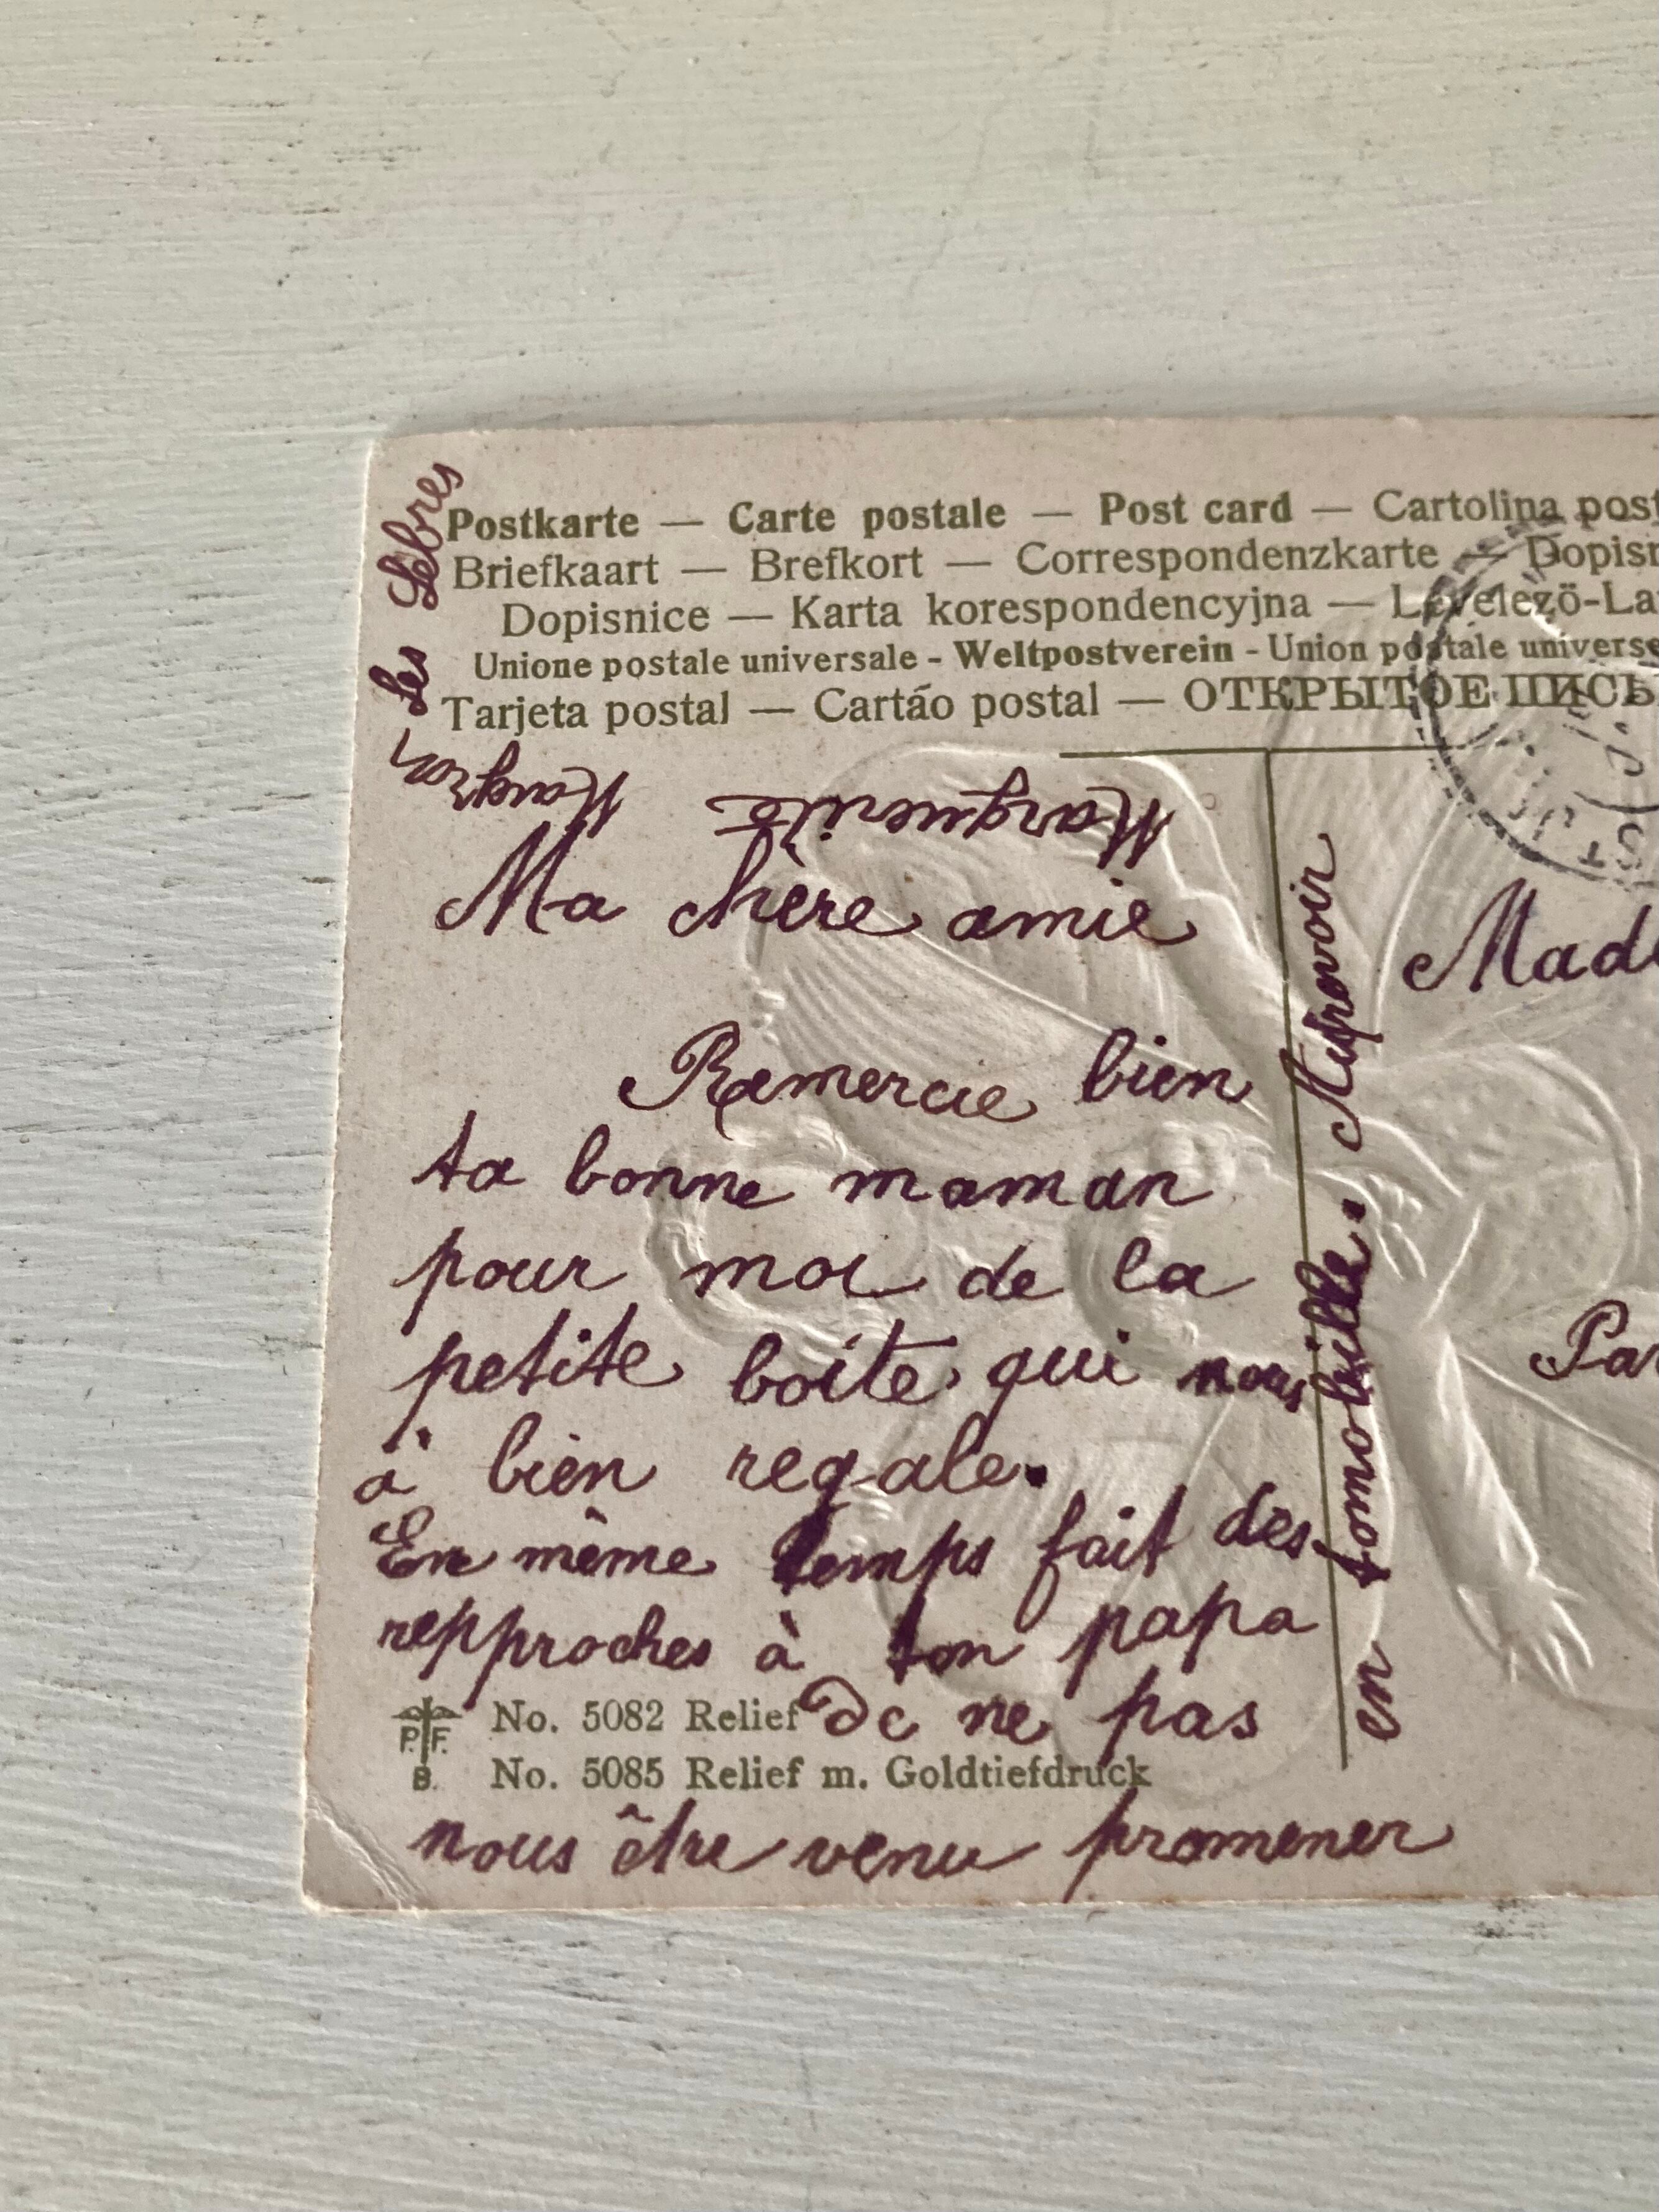 Les Lebres
Postkarte — Carte postale — Post card — Cartolina post
Briefkaart — Brefkort — Correspondenzkarte — Dopisn
Dopisnice — Karta korespondencyjna — Levelezö-La
Unione postale universale - Weltpostverein - Union postale universe
Tarjeta postal — Cartão postal — ОТКРЫТОЕ ПИСЬ
Marguerite
Ma chère amie
Remercie bien
ta bonne maman
pour moi de la
petite boite qui nous
à bien regale.
En même temps fait des
repproches à ton papa
De ne pas
nous être venu promener
en tomobille. Aufrevoir
Made
Par
P. F.
B.
No. 5082 Relief
No. 5085 Relief m. Goldtiefdruck